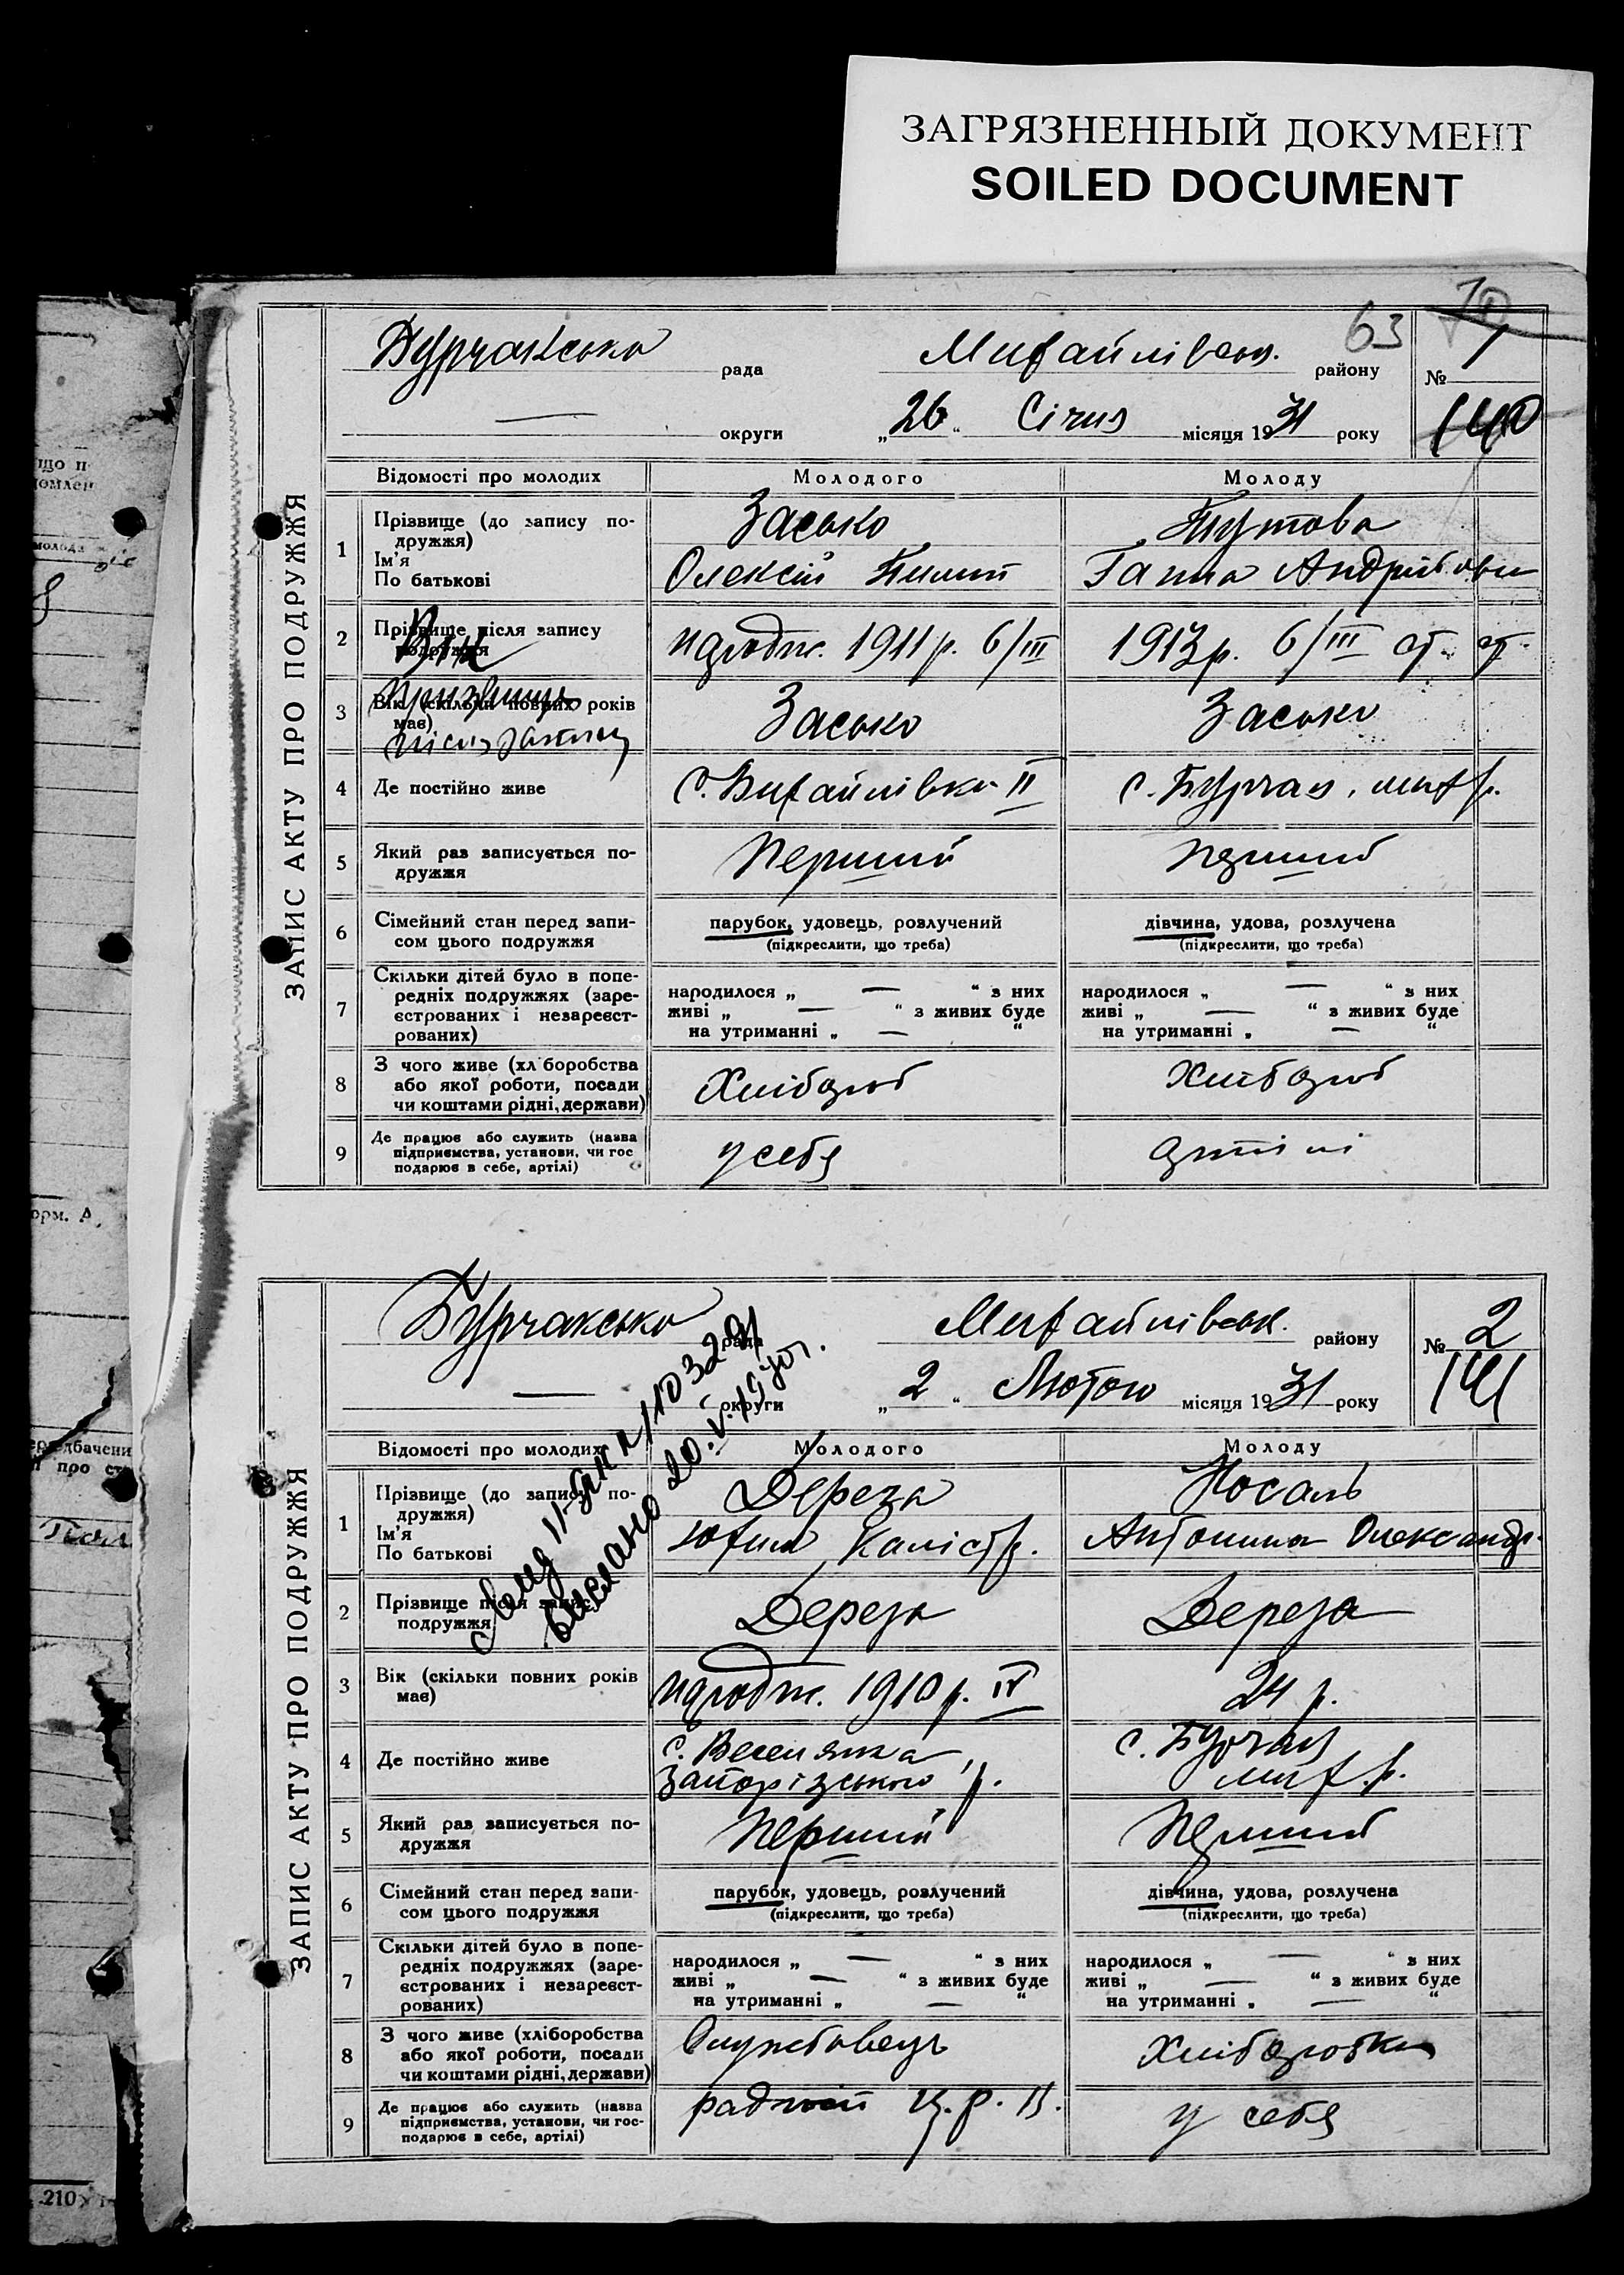 ЗАГРЯЗНЕННЫЙ ДОКУМЕНТ
SOILED DOCUMENT
63
ЗАПИС АКТУ ПРО ПОДРУЖЖЯ
Бурчакська рада Михайлівськ. району № 1
округи „26“ Січня місяця 1931 року 140
Відомості про молодих Молодого Молоду
1 Прізвище (до запису по-
дружжя) Засько Тутова
Ім'я
По батькові Олексій Пилип Ганна Андріївовни
2 Прізвище після запису
подружжя Вік народж. 1911 р. 6/III 1913 р. 6/III ст. ст.
3 Вік (скільки повних років
має) Призвище після запису Засько Засько
4 Де постійно живе с. Михайлівка II с. Бурчак, мих р.
5 Який раз записується по-
дружжя Перший перший
6 Сімейний стан перед запи-
сом цього подружжя парубок, удовець, розлучений дівчина, удова, розлучена
(підкреслити, що треба) (підкреслити, що треба)
7 Скільки дітей було в попе-
редніх подружжях (заре-
єстрованих і незареєст-
рованих)
народилося „ — “ з них народилося „ — “ з них
живі „ — “ з живих буде живі „ — “ з живих буде
на утриманні „ — “ на утриманні „ — “
8 З чого живе (хліборобства
або якої роботи, посади
чи коштами рідні, держави) Хлібороб Хлібороб
9 Де працює або служить (назва
підприємства, установи, чи гос
подарює в себе, артілі) у себя артілі
ЗАПИС АКТУ ПРО ПОДРУЖЖЯ
Бурчакська рада Михайлівськ. району № 2
округи „2“ Лютого місяця 1931 року 141
Відомості про молодих Молодого Молоду
1 Прізвище (до запису по-
дружжя) Дереза Носаль
Ім'я
По батькові Юхим Калістр. Антонина Олександр.
2 Прізвище після запису
подружжя Дереза Дереза
выслано 20.V.1970г.
3 Вік (скільки повних років
має) народж. 1910 р. IV 24 р.
4 Де постійно живе с. Веселянка с. Бурчак
Запорізського р. мих. р.
5 Який раз записується по-
дружжя Перший Перший
6 Сімейний стан перед запи-
сом цього подружжя парубок, удовець, розлучений дівчина, удова, розлучена
(підкреслити, що треба) (підкреслити, що треба)
7 Скільки дітей було в попе-
редніх подружжях (заре-
єстрованих і незареєст-
рованих)
народилося „ — “ з них народилося „ — “ з них
живі „ — “ з живих буде живі „ — “ з живих буде
на утриманні „ — “ на утриманні „ — “
8 З чого живе (хліборобства
або якої роботи, посади
чи коштами рідні, держави) Службовець Хліборобка
9 Де працює або служить (назва
підприємства, установи, чи гос-
подарює в себе, артілі) у себя
210